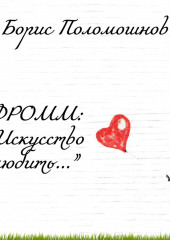 Борис Поломошнов
ФРОММ:
Искусство
любить..."